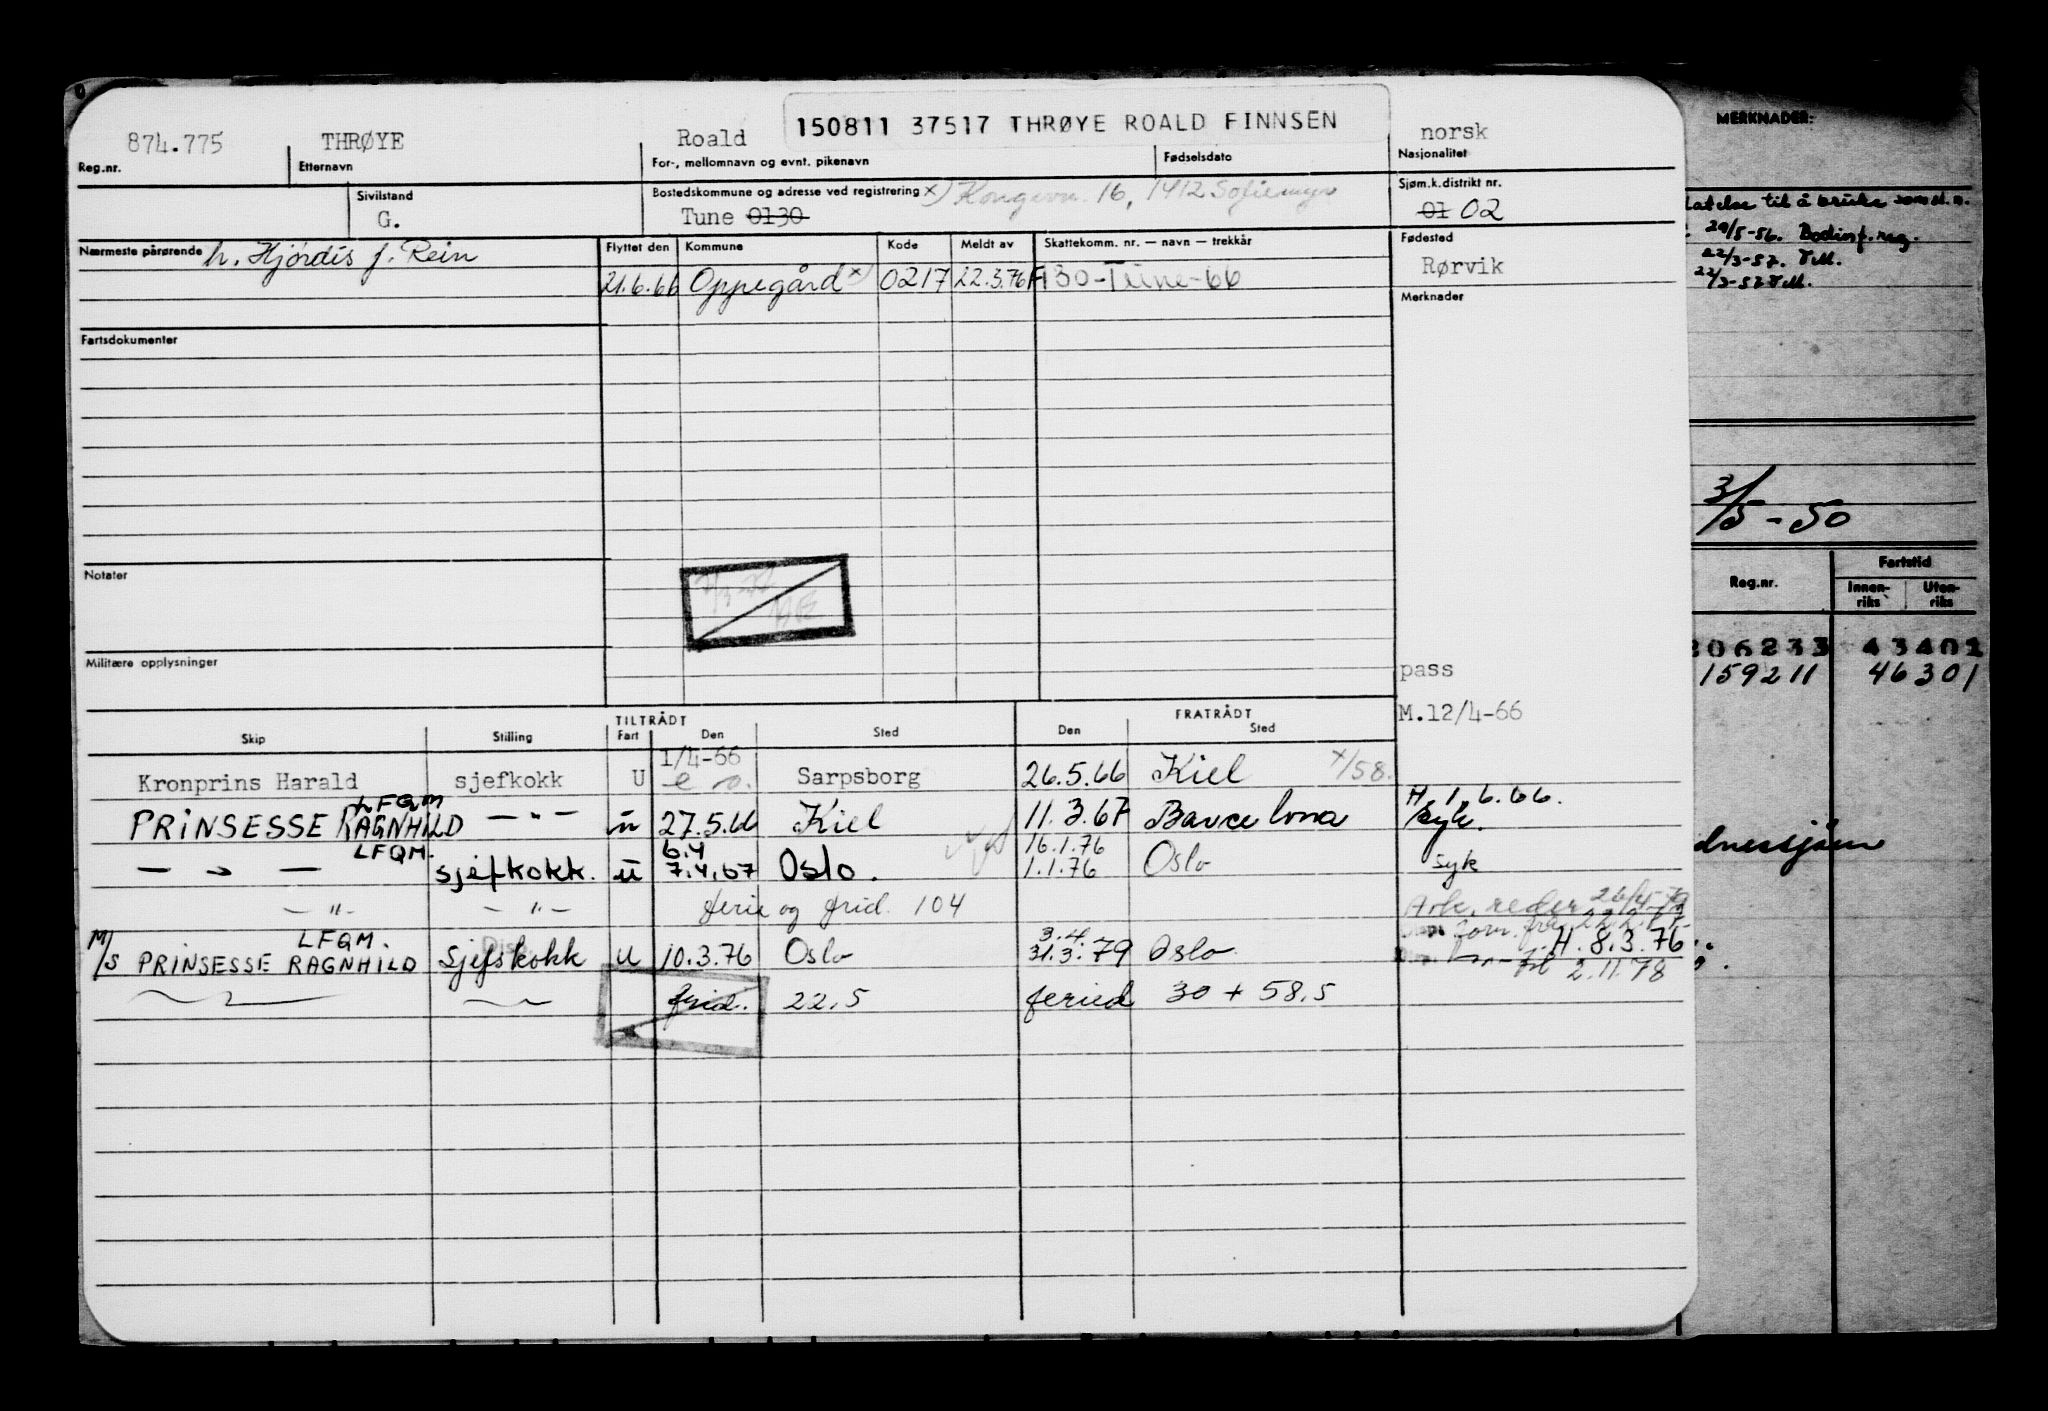 874.775 THRØYE Roald 150811 37517 THRØYE ROALD FINNSEN norsk
Reg.nr. Etternavn For-, mellomnavn og evnt. pikenavn Fødselsdato Nasjonalitet
Sivilstand Bostedskommune og adresse ved registrering x) Kongevn. 16, 1412 Sofiemyr Sjøm.k.distrikt nr.
G. Tune 0130 01 02
Nærmeste pårørende h. Hjördis f. Rein Flyttet den Kommune Kode Meldt av Skattekomm. nr. — navn — trekkår Fødested
21.6.66 Oppegård x) 0217 22.3.76 130-Tune-66 Rørvik
Merknader
Fartsdokumenter
Notater
Militære opplysninger
pass
M.12/4-66
TILTRÅDT FRATRÅDT
Skip Stilling Fart Den Sted Den Sted
1/4-66
Kronprins Harald sjefkokk U Sarpsborg 26.5.66 Kiel x/58.
LFQM H. 1.6.66.
PRINSESSE RAGNHILD — " — u 27.5.66 Kiel 11.3.67 Barcelona syk.
LFQM. 6.4 16.1.76
— " — sjefkokk. u 7.4.67 Oslo. 1.1.76 Oslo syk
— " — — " — ferie og frid. 104
Ark. reder 26/4-79
LFQM. 3.4. H. 8.3.76
M/S PRINSESSE RAGNHILD Sjefskokk u 10.3.76 Oslo 31.3.79 Oslo 2.11.78
frid. 22.5 feried 30 + 58.5
MERKNADER:
til å bruke
20/5-56.
22/3-57. TM.
22/3-57 TM.
3/5-50
Reg.nr. Fartstid
Innen-riks Uten-riks
206233 43401
159211 46301